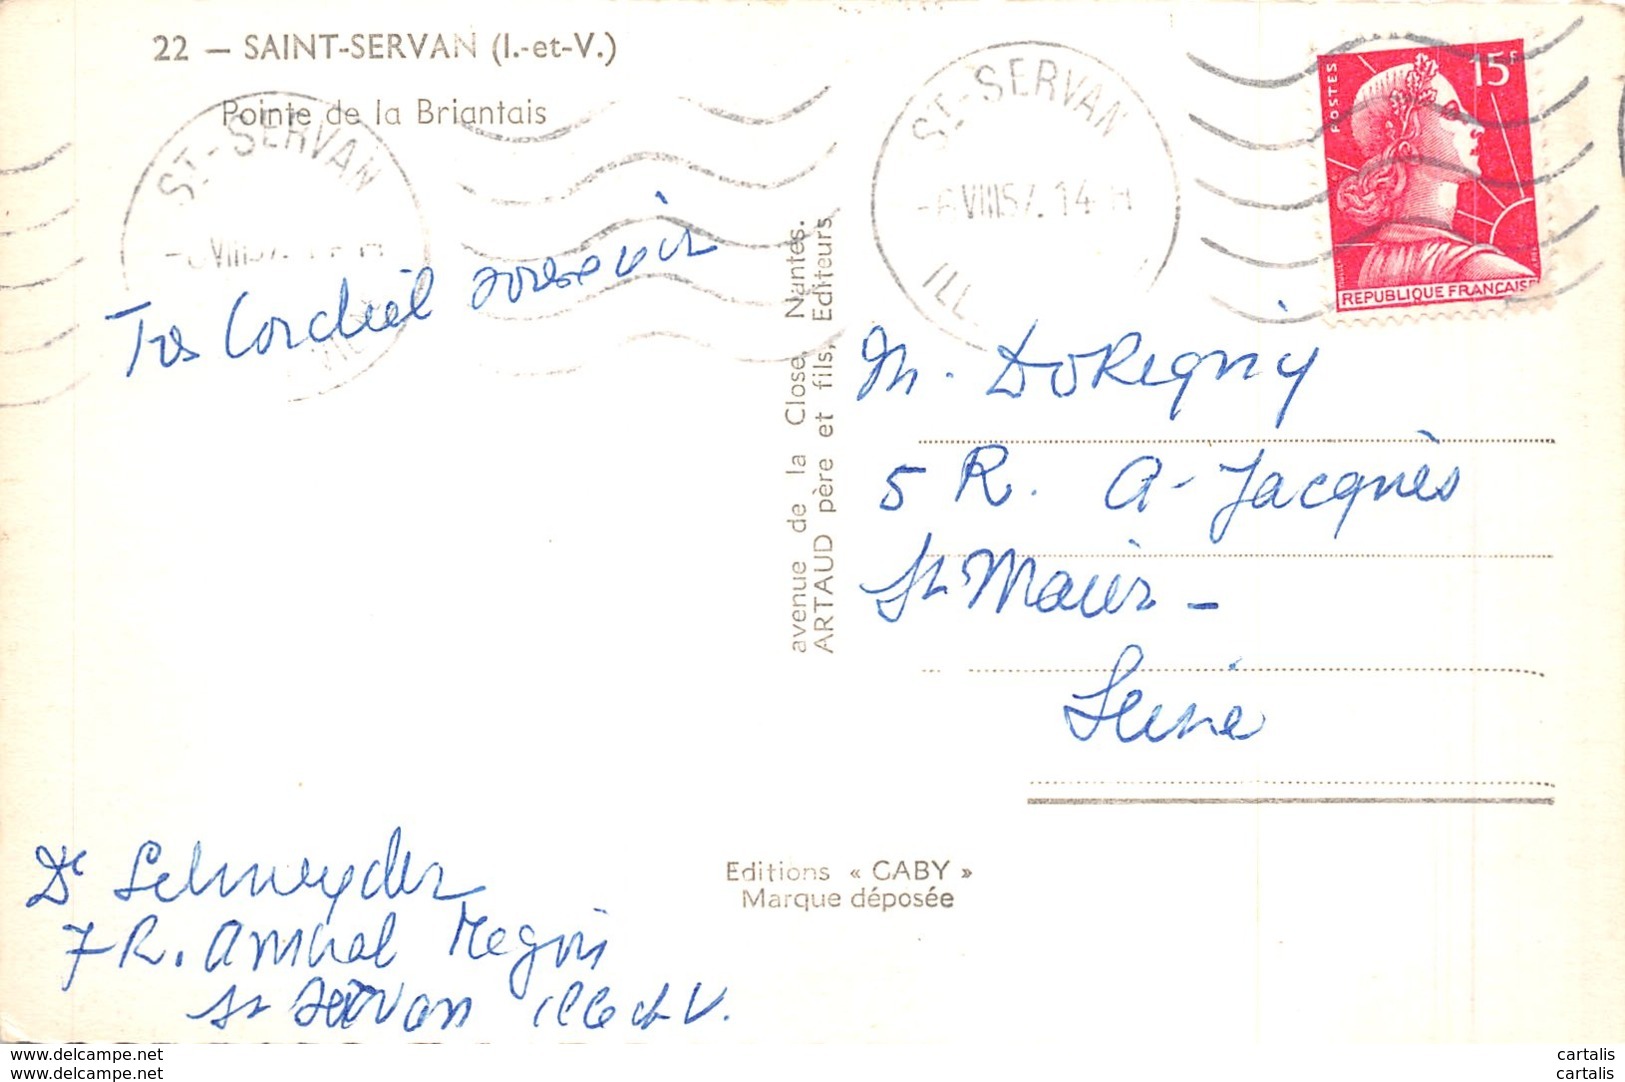 22 — SAINT-SERVAN (I.-et-V.)
Pointe de la Briantais
ST-SERVAN
ST-SERVAN
-6 VIII 57. 14 H
ILL
POSTES
15F
REPUBLIQUE FRANÇAISE
Tres Cordial souvenir
avenue de la Close, Nantes.
ARTAUD père et fils, Editeurs
M. Doregny
5 R. A-Jacquès
St Maur -
Seine
Editions « GABY »
Marque déposée
De Schneyder
7 R. Amiral Magon
St Servan Ille et V.
delcampe.net
delcampe.net
cartalis
cartalis